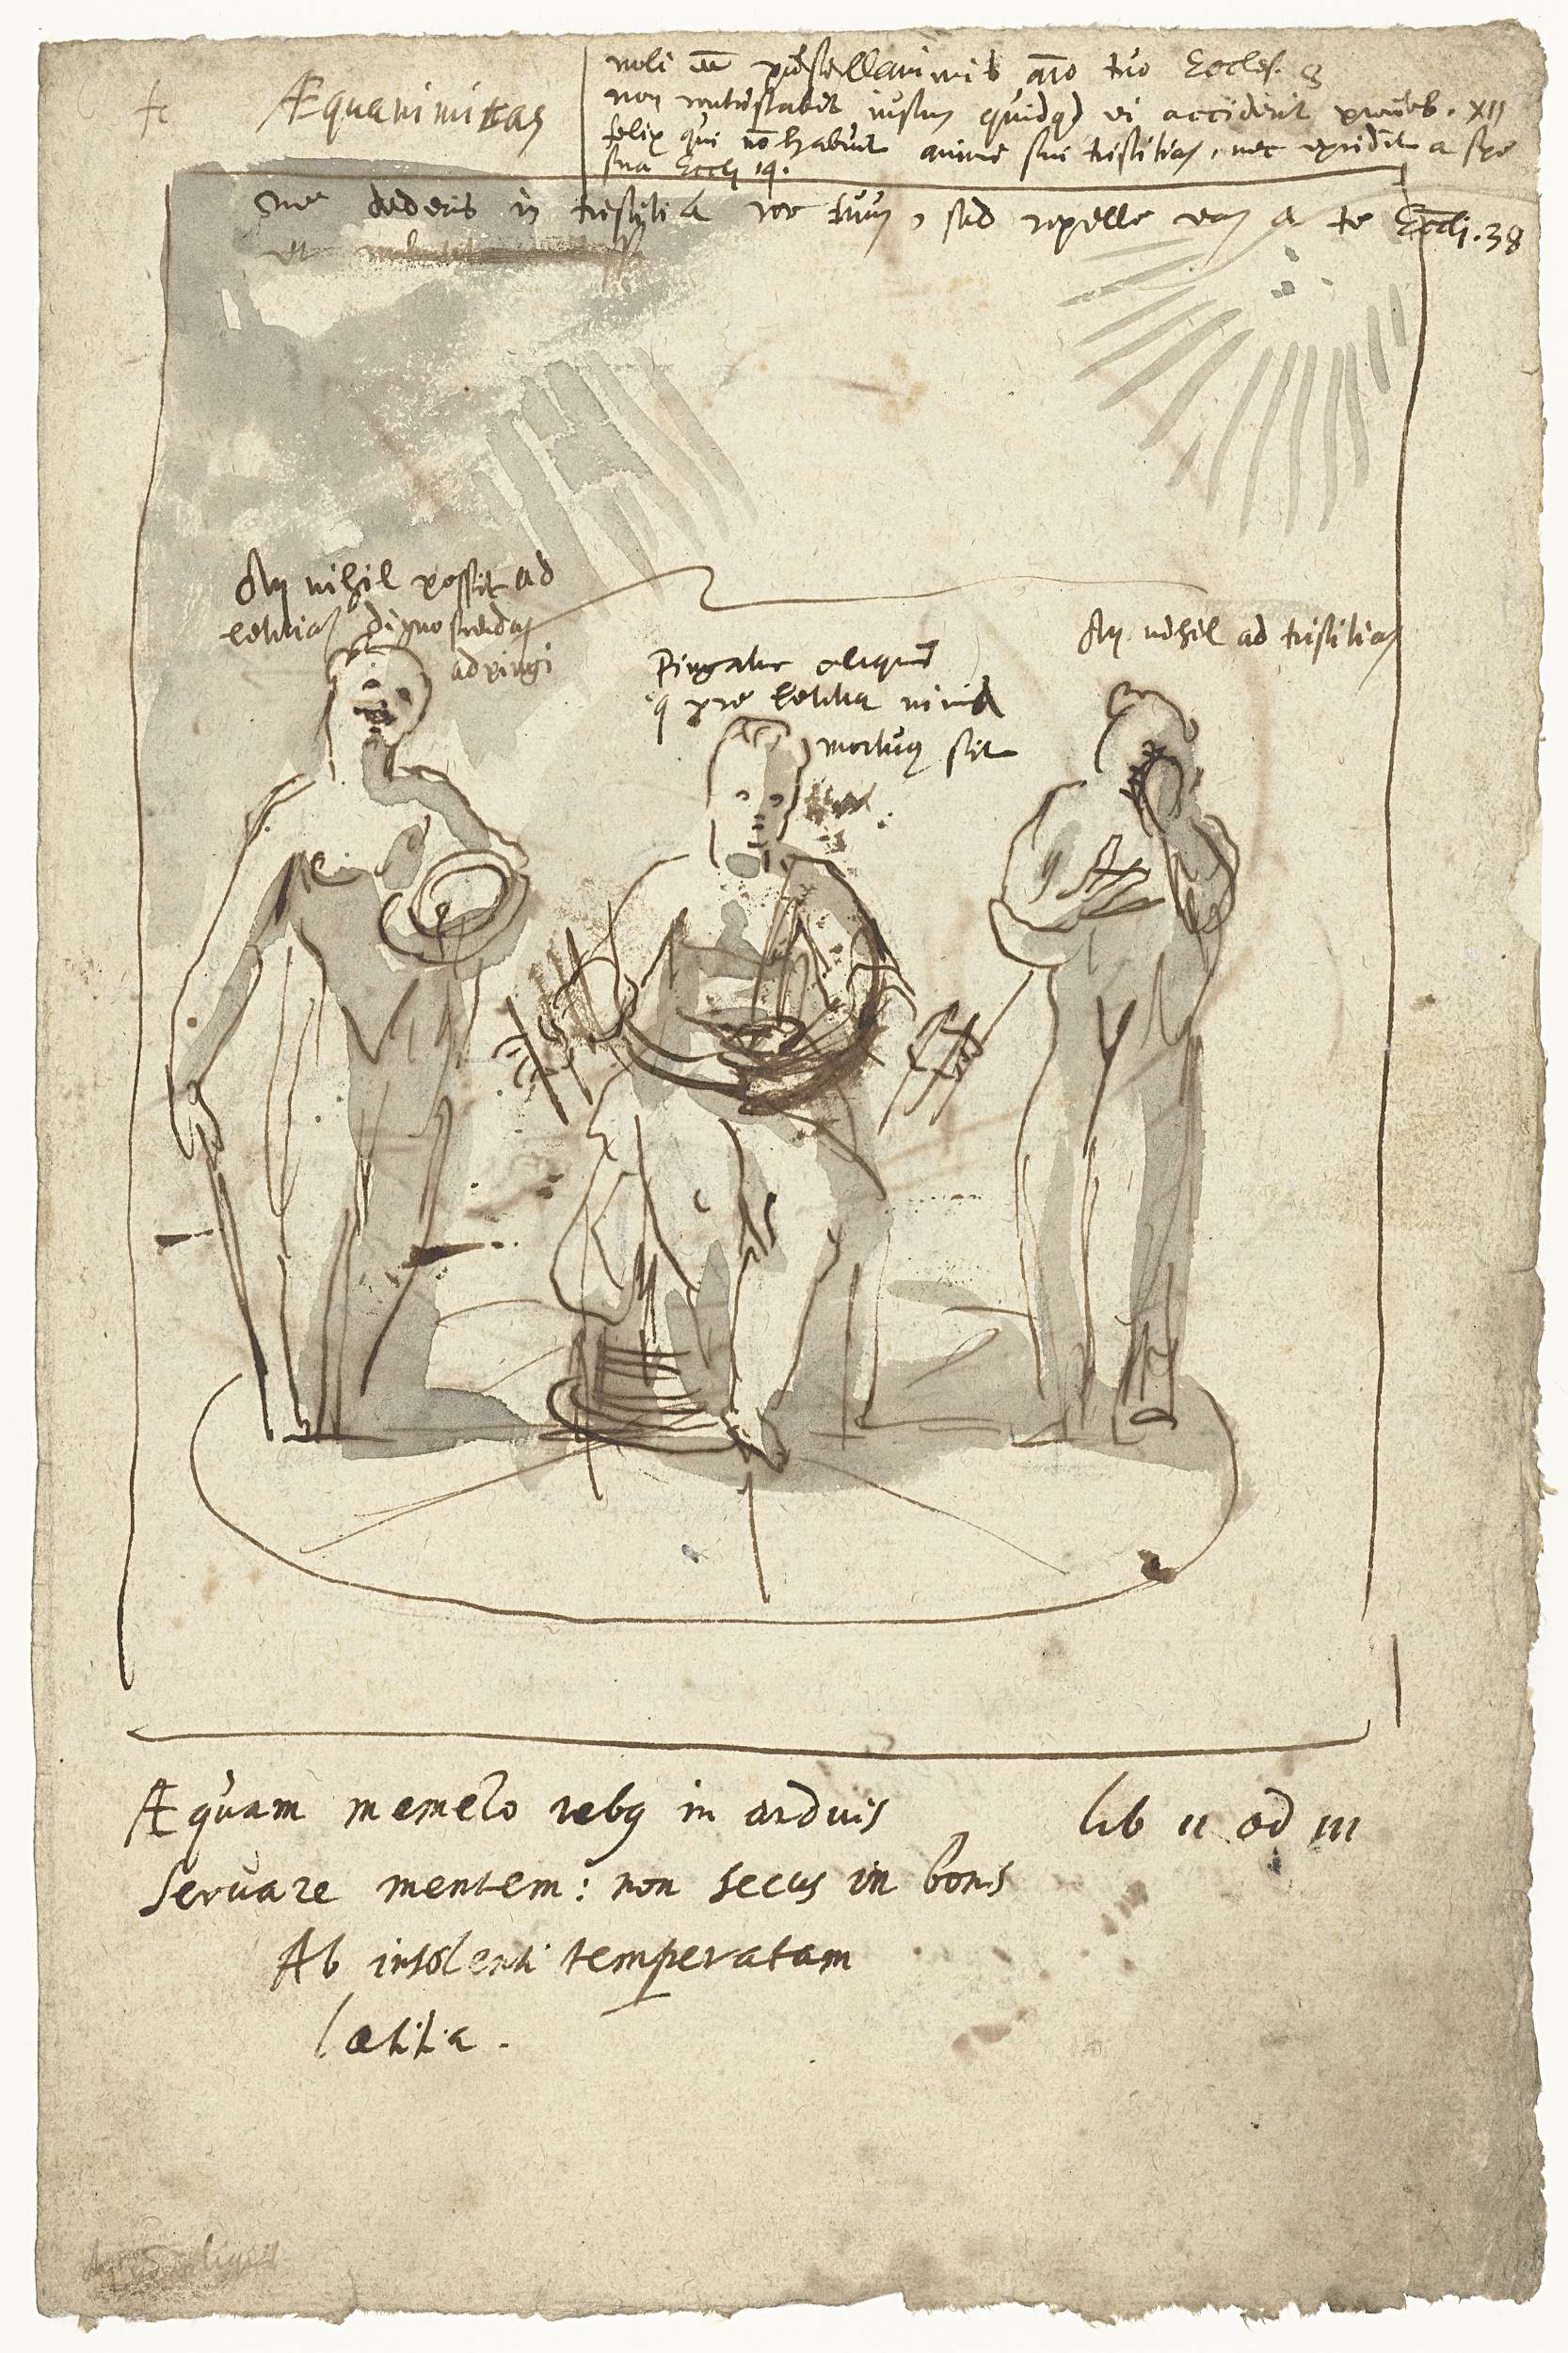 Æquanimitas
noli ēē pusillanimis aīo tuo Eccles. 8
non contristabit iustum quidqd ei acciderit proverb. XII
felix qui nō habuit animi sui tristitiam, nec excidit a spe
sua Eccli 14.
ne dederis in tristitia cor tuum, sed repelle eam a te Eccli. 38
et
An nihil possit ad
letitiam dignoscendam
adpingi
Pingatur aliquis
q pre letitia nimia
mortuus sit
An nihil ad tristitiam
Æquam memeto rebq in arduis lib II od III
Servare mentem: non secus in bonis
Ab insolenti temperatam
lætitia.